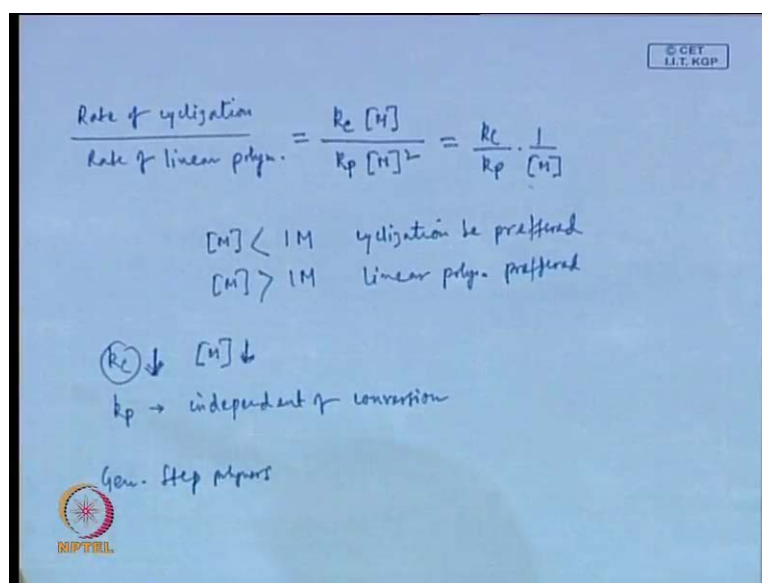 © CET
I.I.T. KGP
Rate of cyclization / Rate of linear polym. = kc [M] / kp [M]² = kc/kp · 1/[M]
[M] < 1M cyclization be preffered
[M] > 1M linear polym. preffered
kc ↓ [M] ↓
kp → independent of convertion
Gen. Step polymers
NPTEL